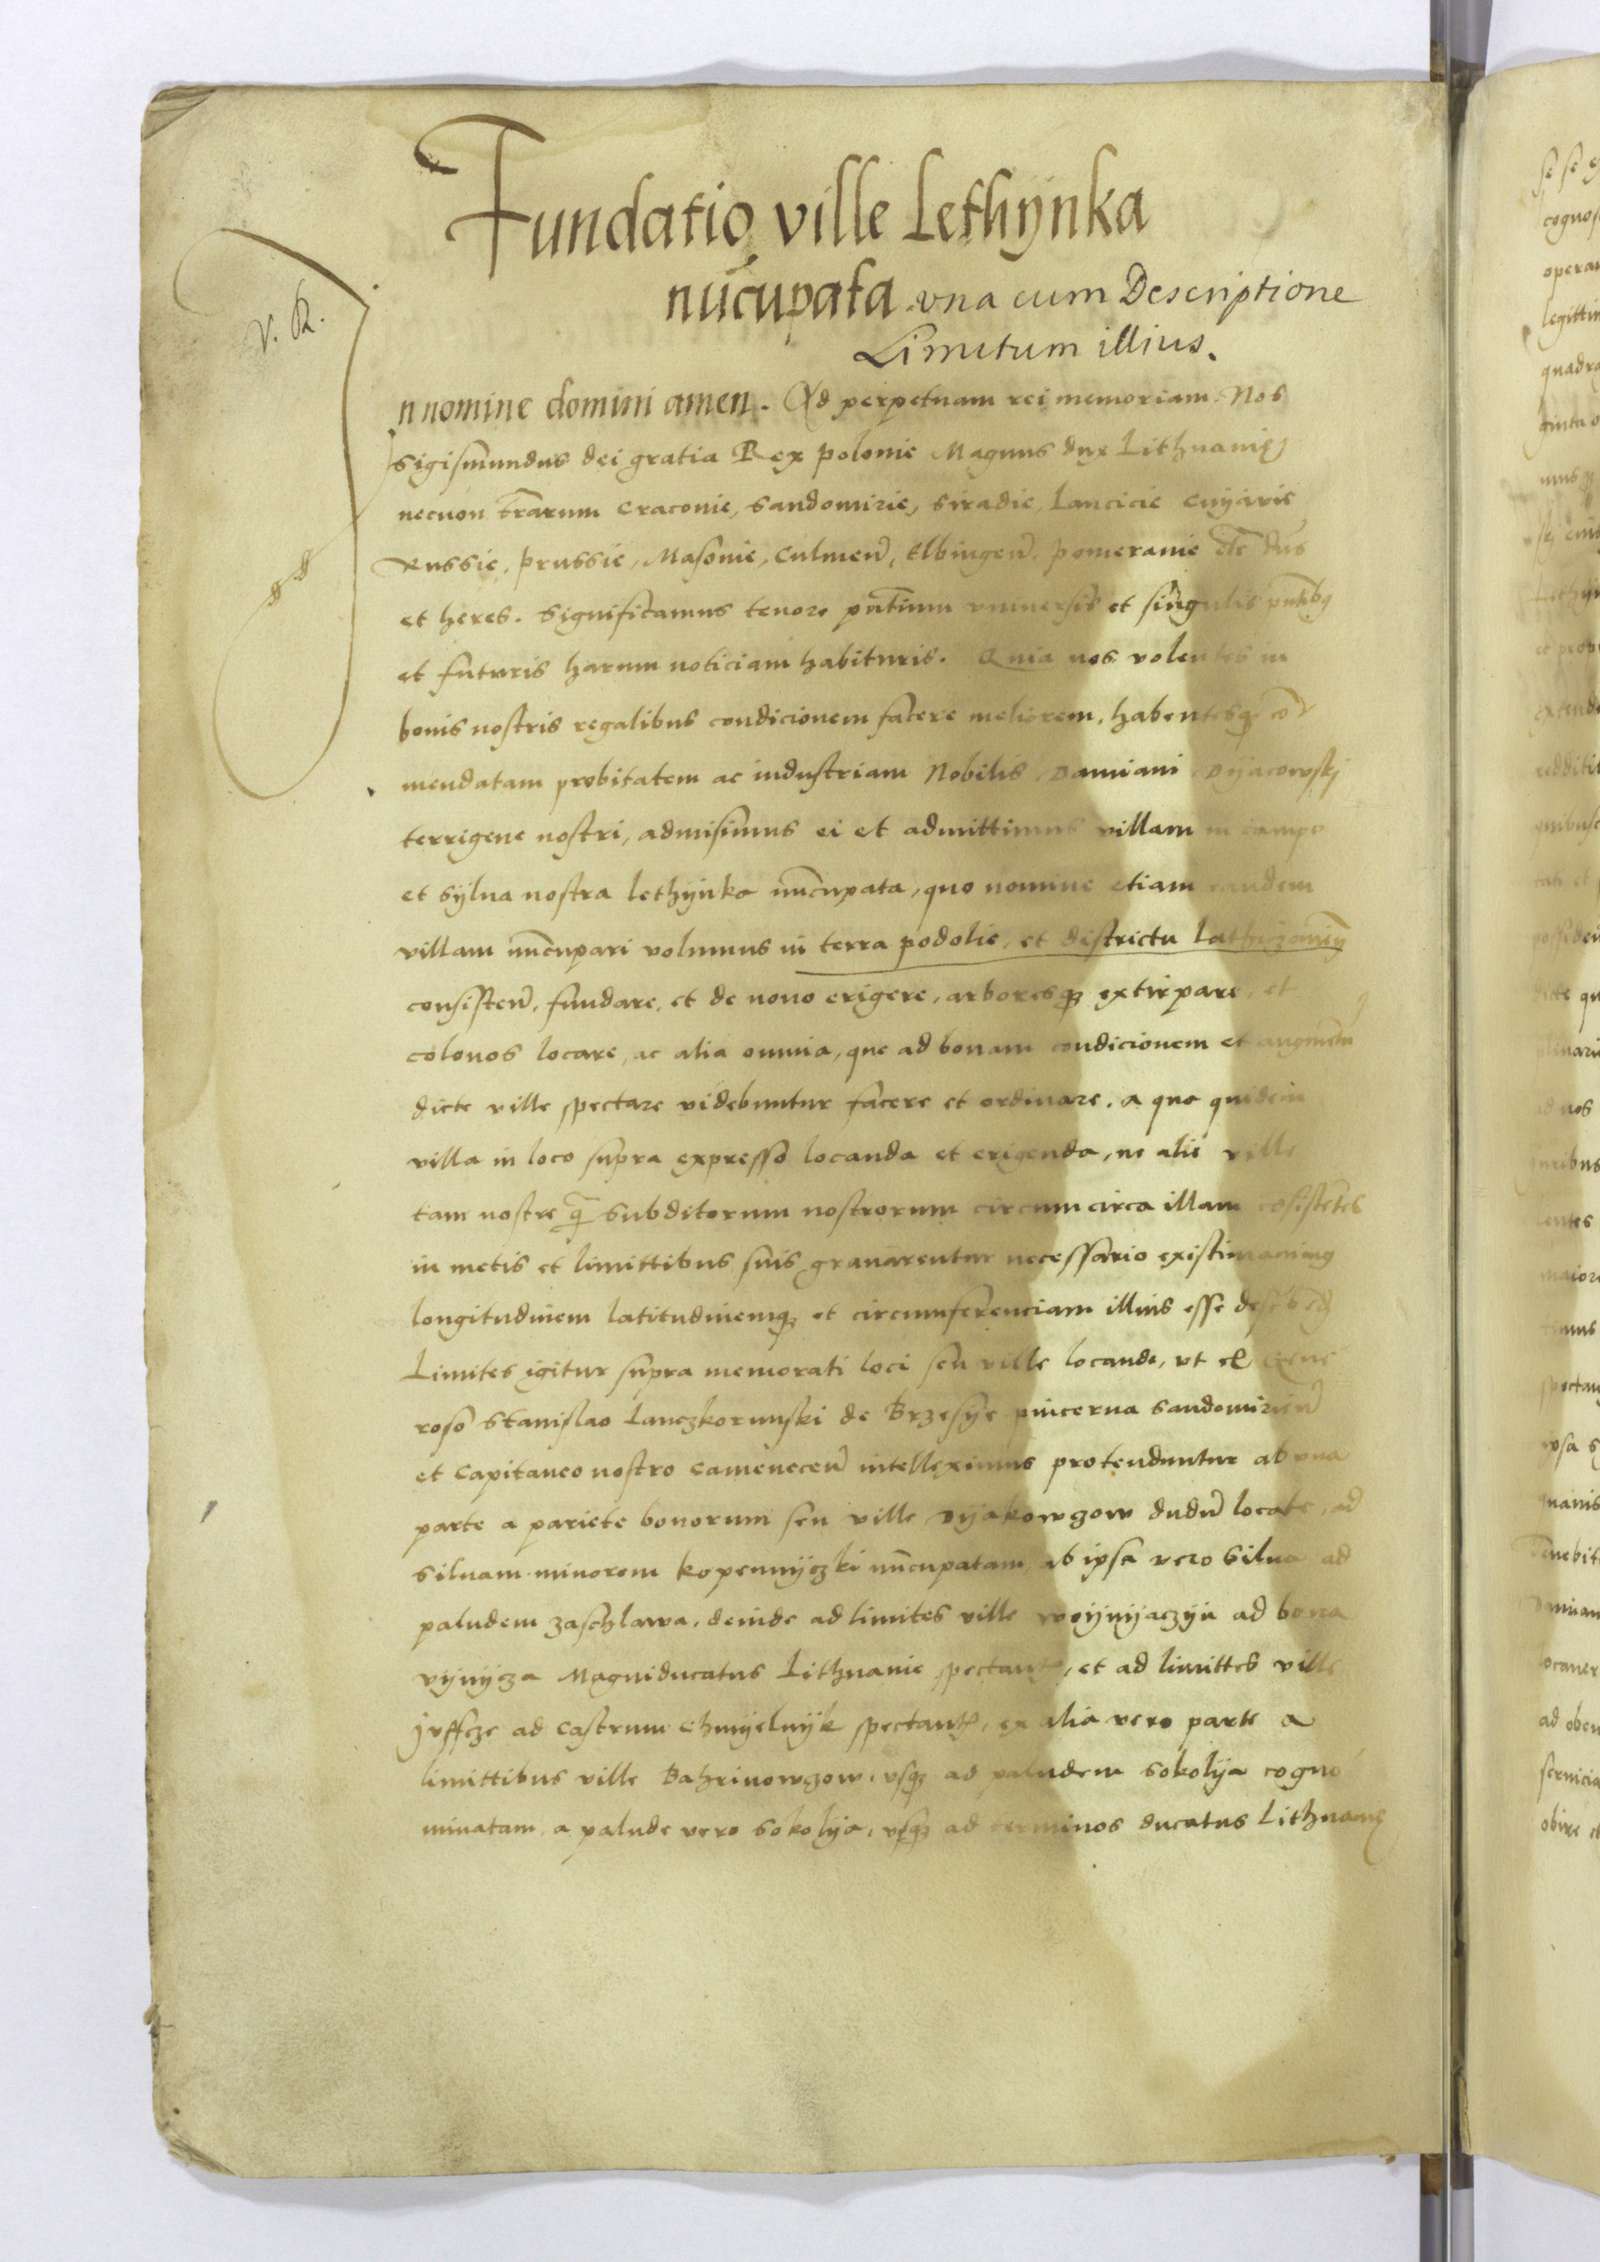 Fundatio ville Lethynka
nūcupata vna cum Descriptione
Limitum illius.
V. R.
In nomine domini amen. Ad perpetuam rei memoriam. Nos
Sigismundus dei gratia Rex polonie Magnus dux Lithuanie
necnon trarum Craconie, Sandomirie, Siradie, Lancicie Cuyavie
Russie, prussie, Masonie, Culmen̄, Elbingen̄. pomeranie etc dn̄s
et heres. Significamus tenore pn̄tium vniuersis et singulis pn̄tibus
et futuris harum noticiam habituris. Quia nos volentes in
bonis nostris regalibus condicionem facere meliorem, habentesq; cō
mendatam probitatem ac industriam Nobilis Damiani Dyacowskj
terrigene nostri, admisimus ei et admittimus villam in campo
et sylua nostra lethynka nūcupata, quo nomine etiam eandem
villam nūcupari volumus in terra podolie, et districtu
consisten̄. fundare, et de nouo erigere, arboresq; extirpare, et
colonos locare, ac alia omnia, que ad bonam condicionem et augmentū
dicte ville spectare videbuntur facere et ordinare. A quo quidem
villa in loco supra expresso locanda et erigenda, ne alie ville
tam nostre q̄ subditorum nostrorum circumcirca illam cōsistētes
in metis et limittibus suis grauarentur necessario existimauimus
longitudinem latitudinemq; et circumferenciam illius esse
Limites igitur supra memorati loci seu ville locande, vt ex Gene
roso Stanislao Lanczkorunski de Brzesye pincerna Sandomirien̄
et Capitaneo nostro Camenecen̄ intelleximus protenduntur ab vna
parte a pariete bonorum seu ville Dyakowgow dudū locate, ad
siluam minorem kopennyczki nūcupatam, ab ipsa vero silua ad
paludem zaschlawa, deinde ad limites ville woynyaczyn ad bona
vynycza Magniducatus Lithuanie spectant, et ad limittes ville
Jvffcze ad castrum Chmyelnyk spectant, ex alia vero parte a
limittibus ville Bahrinowgow, vsq; ad paludem Sokolya cogno
minatam, a palude vero Sokolya, vsq; ad terminos ducatus Lithuanie